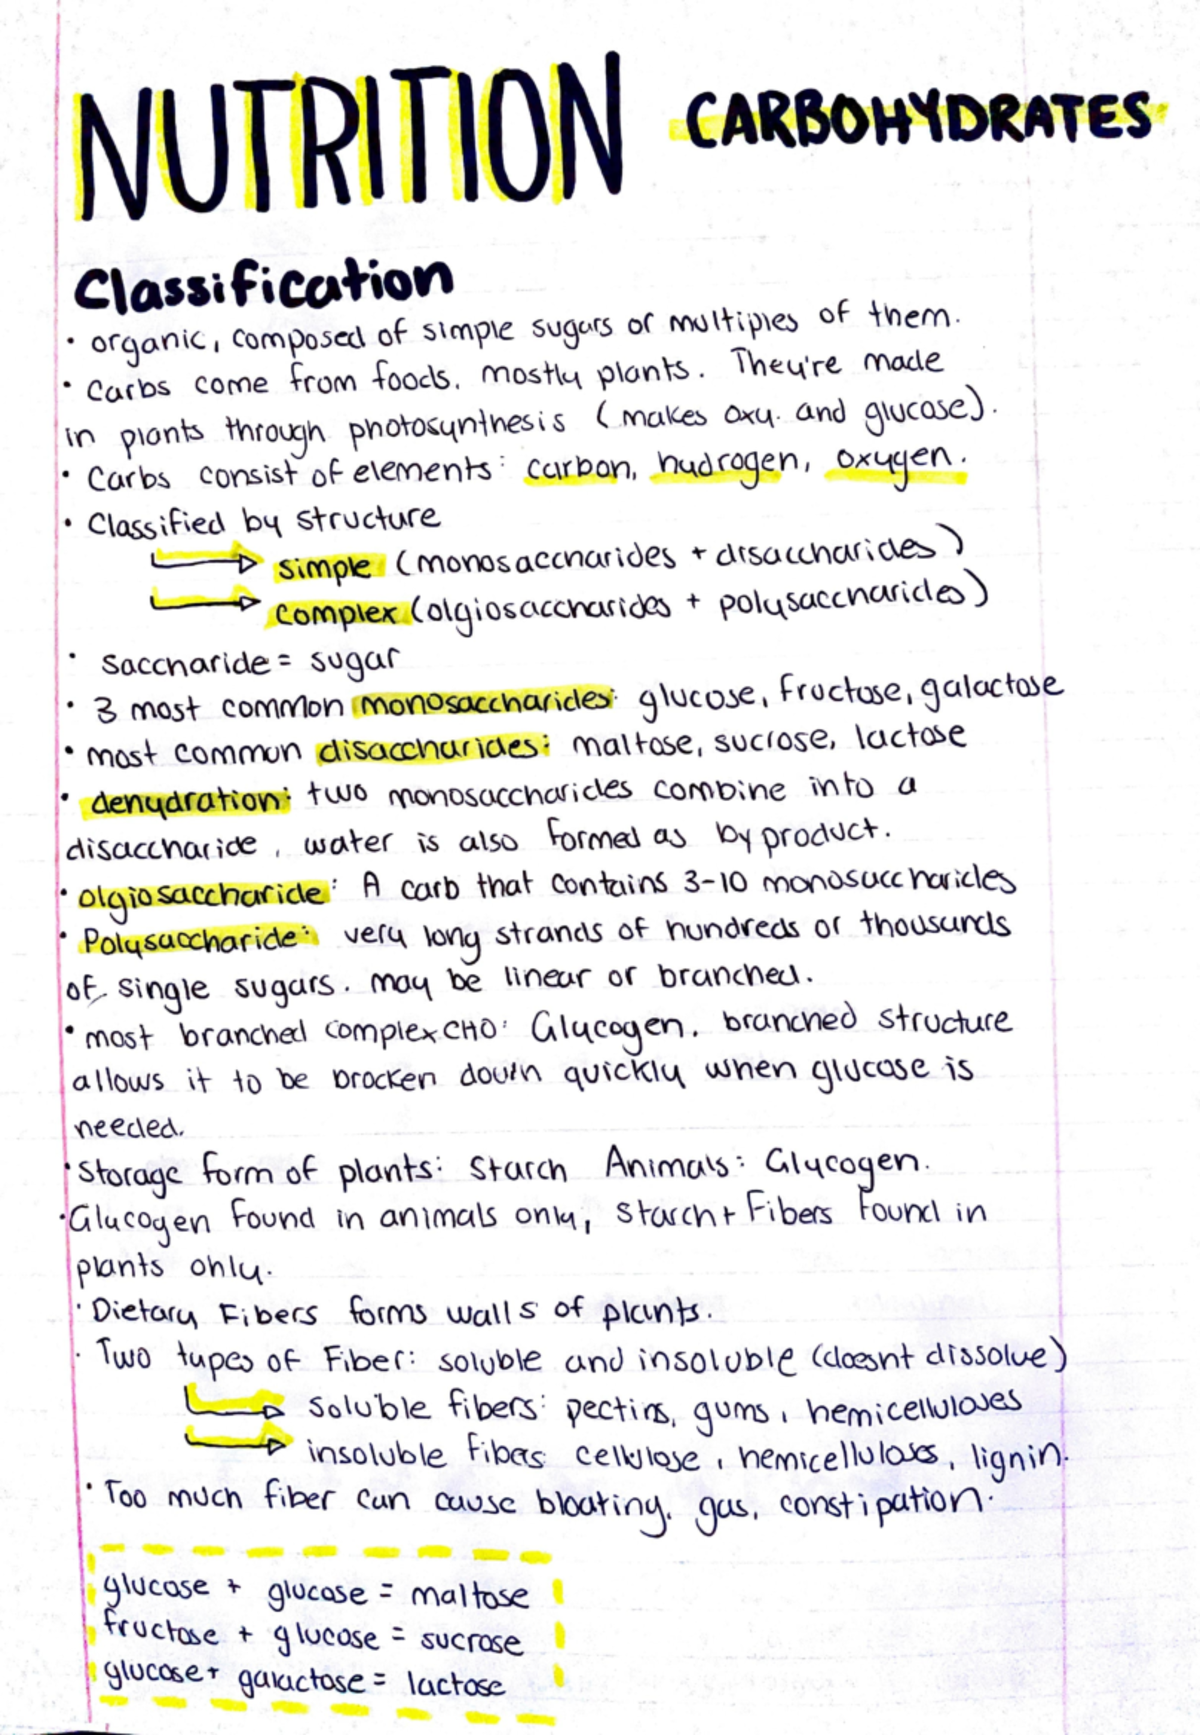 NUTRITION CARBOHYDRATES
Classification
• organic, composed of simple sugars or multiples of them.
• Carbs come from foods, mostly plants. They're made
in plants through photosynthesis (makes oxy. and glucose).
• Carbs consist of elements: carbon, hydrogen, oxygen.
• Classified by structure
simple (monosaccharides + disaccharides)
complex (olgiosaccharides + polysaccharides)
• saccharide = sugar
• 3 most common monosaccharides: glucose, fructose, galactose
• most common disaccharides: maltose, sucrose, lactose
• dehydration: two monosaccharides combine into a
disaccharide, water is also formed as by product.
• olgiosaccharide: A carb that contains 3-10 monosaccharides
• Polysaccharide: very long strands of hundreds or thousands
of single sugars. may be linear or branched.
• most branched complex CHO: Glycogen. branched structure
allows it to be brocken down quickly when glucose is
needed.
• Storage form of plants: Starch Animals: Glycogen.
• Glycogen found in animals only, starch + Fibers found in
plants only.
• Dietary Fibers forms walls of plants.
• Two types of Fiber: soluble and insoluble (doesnt dissolve)
soluble fibers: pectins, gums, hemicelluloses
insoluble fibers: cellulose, hemicelluloses, lignin.
• Too much fiber can cause bloating, gas, constipation.
glucose + glucose = maltose
fructose + glucose = sucrose
glucose + galactose = lactose